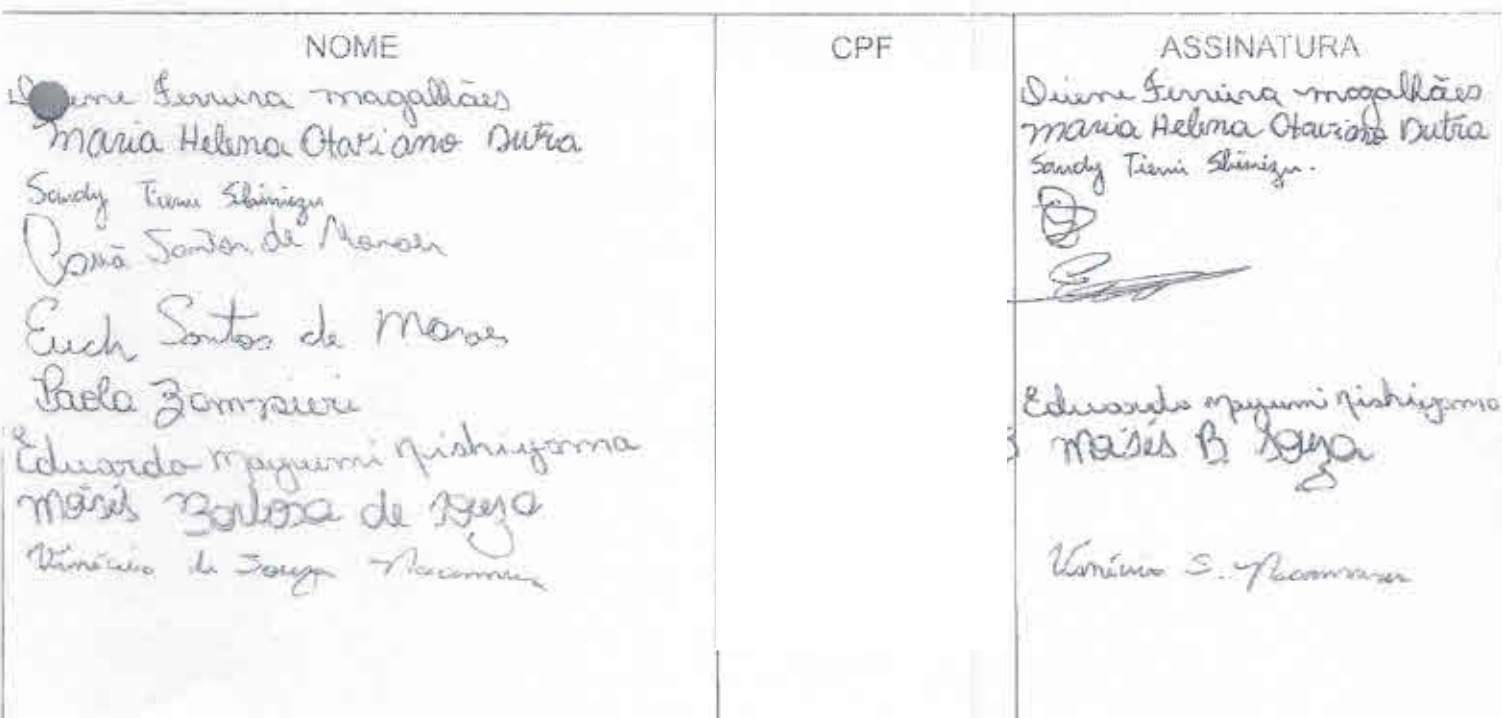 NOME CPF ASSINATURA
Ferreira magalhães Diene Ferreira magalhães
Maria Helena Otaviano Dutra Maria Helena Otaviano Dutra
Sandy Tiemi Shimizu Sandy Tiemi Shimizu.
Santos de Moraes
Santos de Moraes
Paola Zampieri
Eduardo Mayumi Nishiyama Eduardo Mayumi Nishiyama
Moisés Barbosa de Souza Moisés B Souza
Vinícius de Souza Vinícius S.